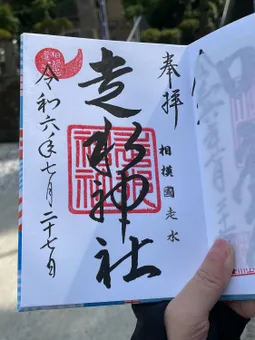 奉拝
相模國走水
走水神社
令和六年七月二十七日